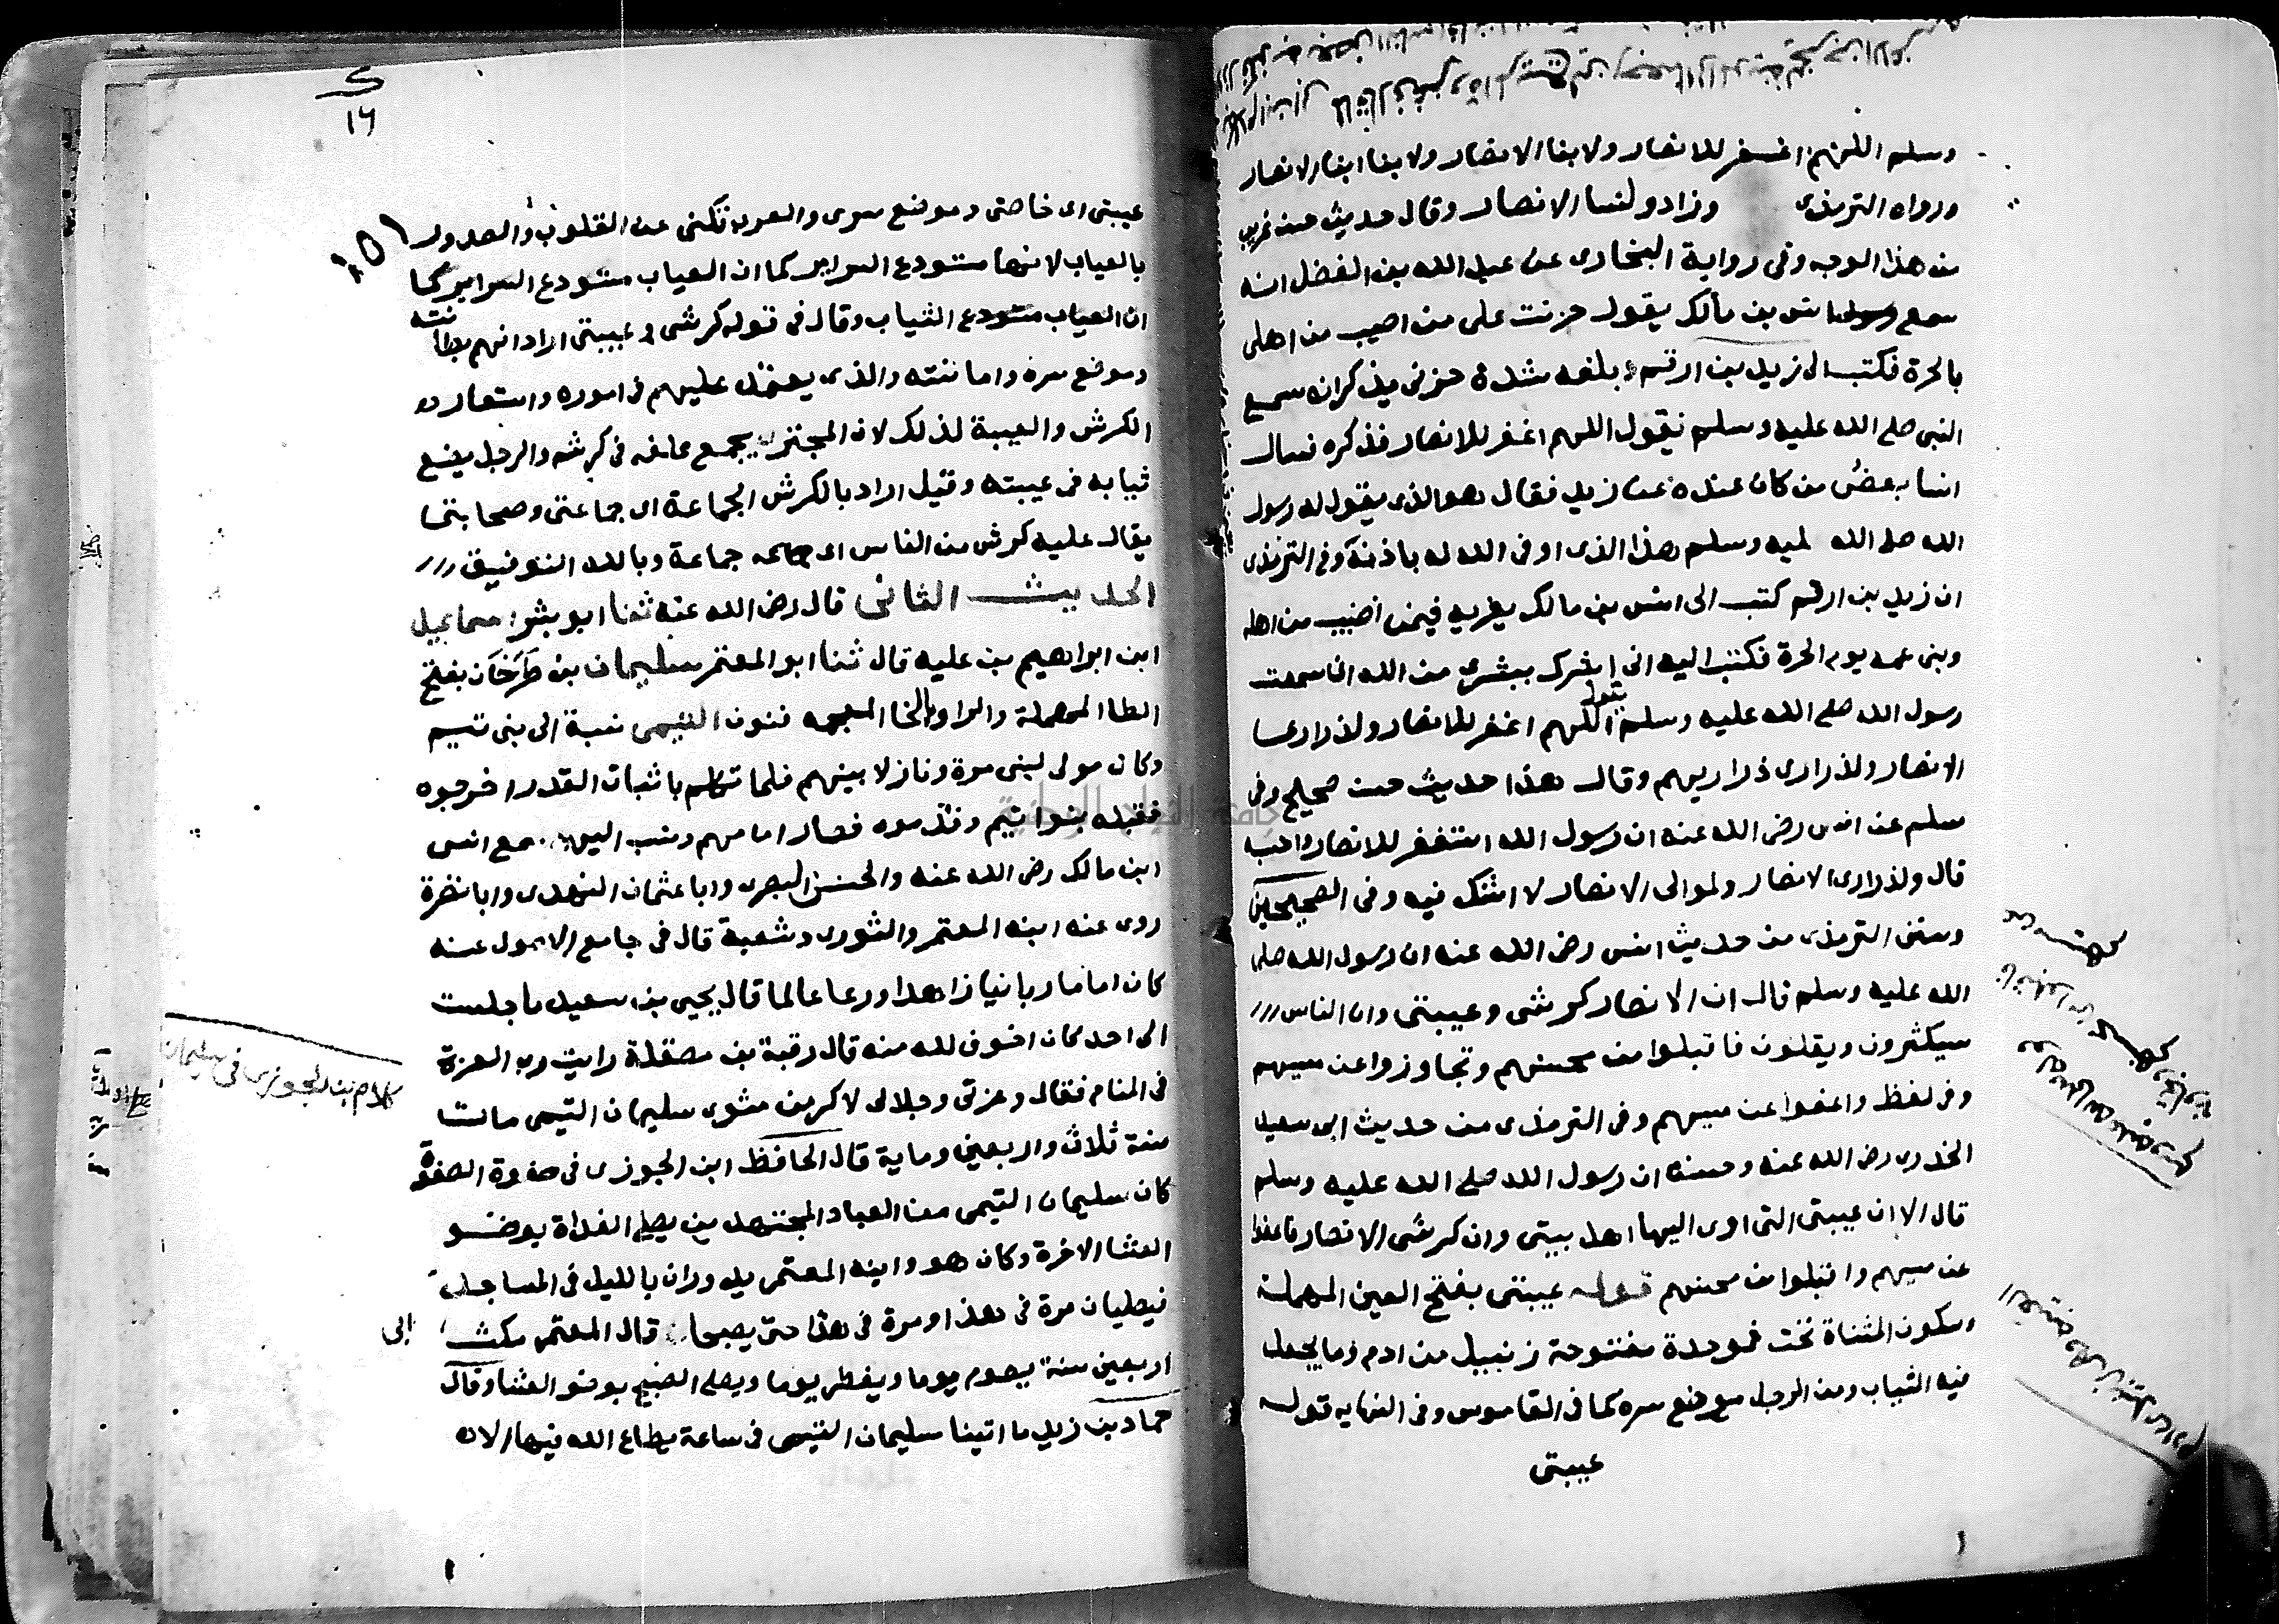 وسلم اللهم اغفر للانصار ولابنا الانصار ولابنا ابنا الانصار
ورواه الترمذي وزاد ولنسا الانصار وقال حديث حسن غريب
من هذا الوجه وفي رواية البخاري عن عبد الله بن الفضل انه
سمع انس بن مالك يقول حزنت على من اصيب من اهلي
بالحرة فكتب الى زيد بن ارقم وبلغه شدة حزني يذكر انه سمع
النبي صلى الله عليه وسلم يقول اللهم اغفر للانصار فذكره فسال
انسا بعض من كان عنده عن زيد فقال هو الذي يقول له رسول
الله صلى الله عليه وسلم هذا الذي اوفى الله له باذنه وفي الترمذي
ان زيد بن ارقم كتب الى انس بن مالك يعزيه فيمن اصيب من اهله
وبني عمه يوم الحرة فكتب اليه اني ابشرك ببشرى من الله اني سمعت
رسول الله صلى الله عليه وسلم يقول اللهم اغفر للانصار ولذراري
الانصار ولذراري ذراريهم وقال هذا حديث حسن صحيح وفي
مسلم عن انس رضي الله عنه ان رسول الله استغفر للانصار واحسبه
قال ولذراري الانصار ولموالي الانصار لا اشك فيه وفي الصحيحين
وسنن الترمذي من حديث انس رضي الله عنه ان رسول الله صلى
الله عليه وسلم قال ان الانصار كرشي وعيبتي وان الناس
سيكثرون ويقلون فاقبلوا من محسنهم وتجاوزوا عن مسيهم
وفي لفظ واعفوا عن مسيهم وفي الترمذي من حديث ابي سعيد
الخدري رضي الله عنه وحسنه ان رسول الله صلى الله عليه وسلم
قال الا ان عيبتي التي اوي اليها اهل بيتي وان كرشي الانصار فاعفوا
عن مسيهم واقبلوا من محسنهم قوله عيبتي بفتح العين المهملة
وسكون المثناة تحت فموحدة مفتوحة زنبيل من ادم وما يجعل
فيه الثياب ومن الرجل موضع سره كما في القاموس وفي النهاية قوله
عيبتي
١٦
عيبتي اي خاصتي وموضع سري والعرب تكني عن القلوب والصدور
بالعياب لانها مستودع السراير كما ان العياب مستودع السراير كما
ان العياب مستودع الثياب وقال في قوله كرشي وعيبتي اراد انهم بطانته
وموضع سره وامانته والذي يعتمد عليهم في اموره واستعار
الكرش والعيبة لذلك لان المجتر يجمع علفه في كرشه والرجل يضع
ثيابه في عيبته وقيل اراد بالكرش الجماعة اي جماعتي وصحابتي
يقال عليه كرش من الناس اي جماعة وبالله التوفيق
الحديث الثاني قال رضي الله عنه ثنا ابو بشر اسماعيل
ابن ابراهيم بن علية قال ثنا ابو المعتمر سليمان بن طرخان بفتح
الطا المهملة والرا وبالخا المعجمه فنون التيمي نسبة الى بني تيم
وكان مولى لبني مرة ونازلا بينهم فلما تكلم باثبات القدر اخرجوه
فقبله بنوا تيم وقدموه فصار امامهم ونسب اليهم سمع انس
ابن مالك رضي الله عنه والحسن البصري وابا عثمان النهدي وابا نضرة
روى عنه ابنه المعتمر والثوري وشعبة قال في جامع الاصول عنه
كان اماما ربانيا زاهدا ورعا عالما قال يحيى بن سعيد ما جلست
الى احد كان اخوف لله منه قال رقبة بن مصقلة رايت رب العزة
في المنام فقال وعزتي وجلالي لاكرمن مثوى سليمان التيمي مات
سنة ثلاث واربعين وماية قال الحافظ ابن الجوزي في صفوة الصفوة
كان سليمان التيمي من العباد المجتهدين يصلي الغداة بوضو
العشا الاخرة وكان هو وابنه المعتمر يدوران بالليل في المساجد
فيصليان مرة في هذا ومرة في هذا حتى يصبحا قال المعتمر مكث ابي
اربعين سنة يصوم يوما ويفطر يوما ويصلي الصبح بوضو العشا وقال
حماد بن زيد ما اتينا سليمان التيمي في ساعة يطاع الله فيها الا
كلام بن الجوزي في سليمان